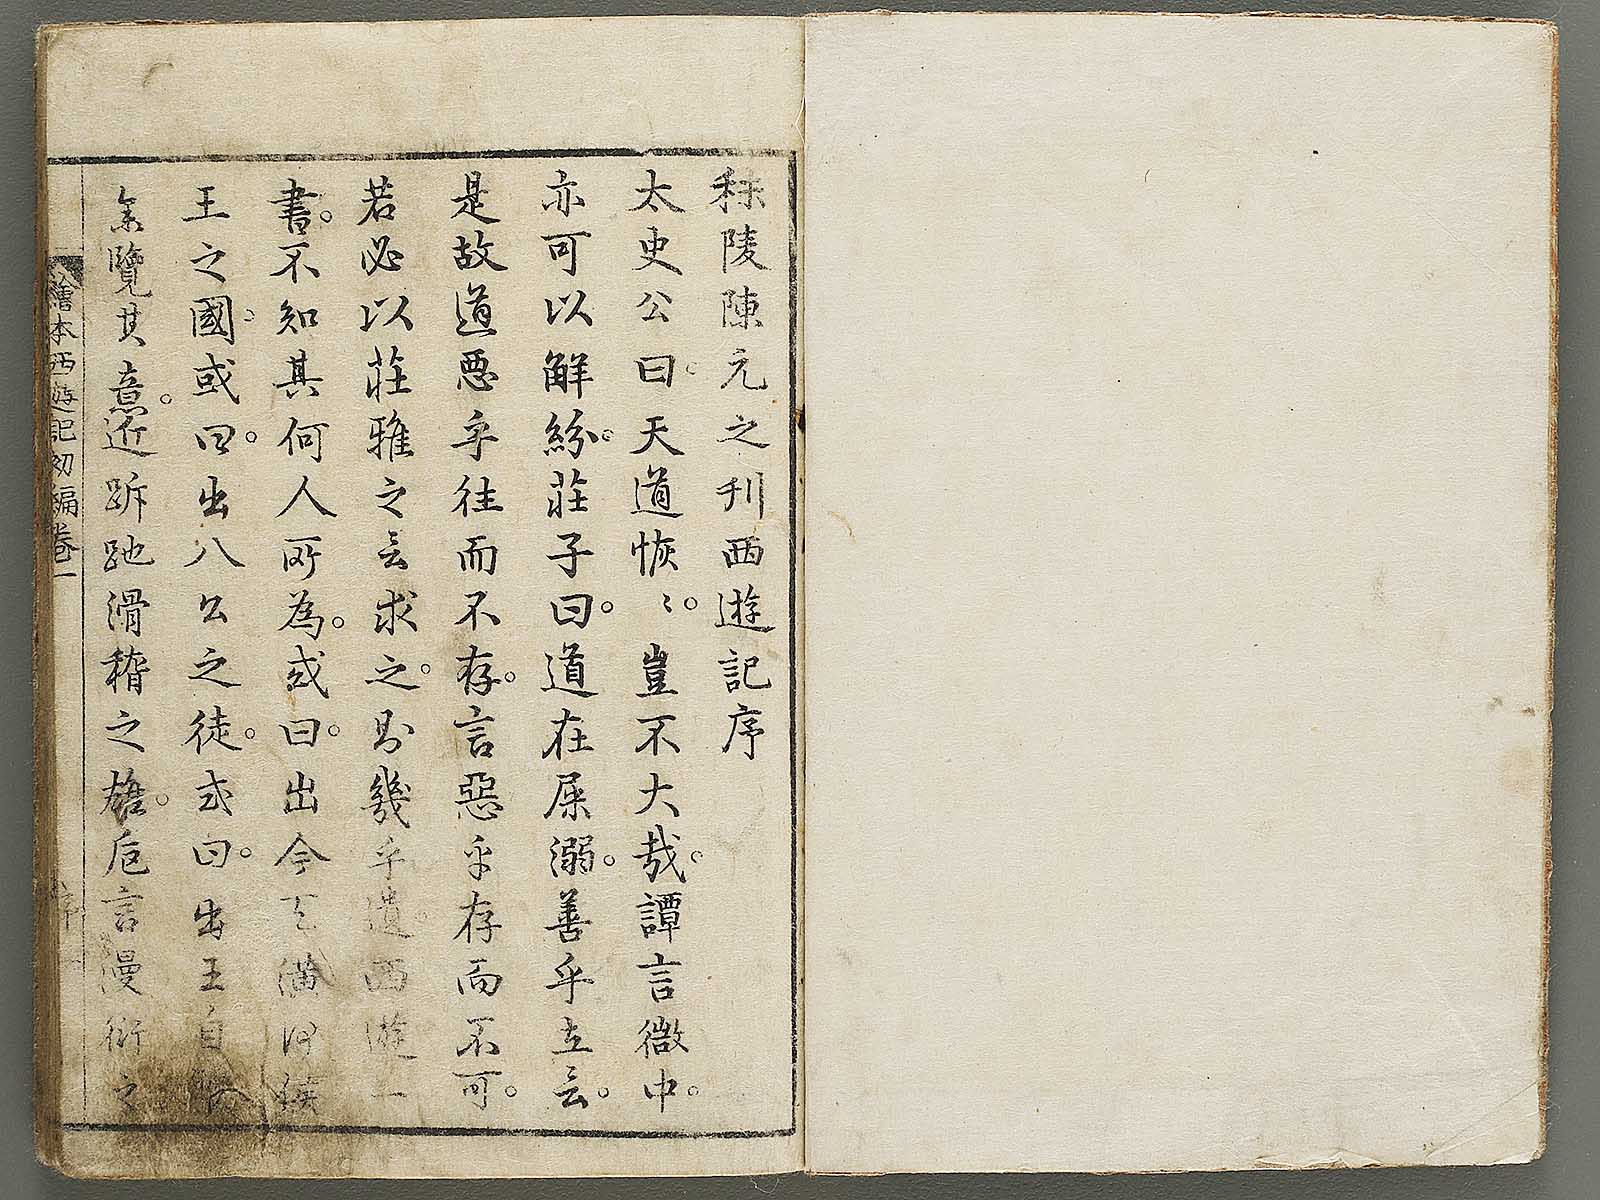 秣陵陳元之刊西遊記序
太史公曰。天道恢〻。豈不大哉。譚言微中。
亦可以觧紛。莊子曰。道在屎溺。善乎立言。
是故道惡乎往而不存。言惡乎存而不可。
若必以莊雅之言求之。則幾乎遺。西遊一
書。不知其何人所為。或曰。出今天潢何侯
王之國。或曰。出八公之徒。或曰。出王自
余覽其意。近跅弛滑稽之雄。卮言漫衍之
繪本西遊記初編卷一
序 一